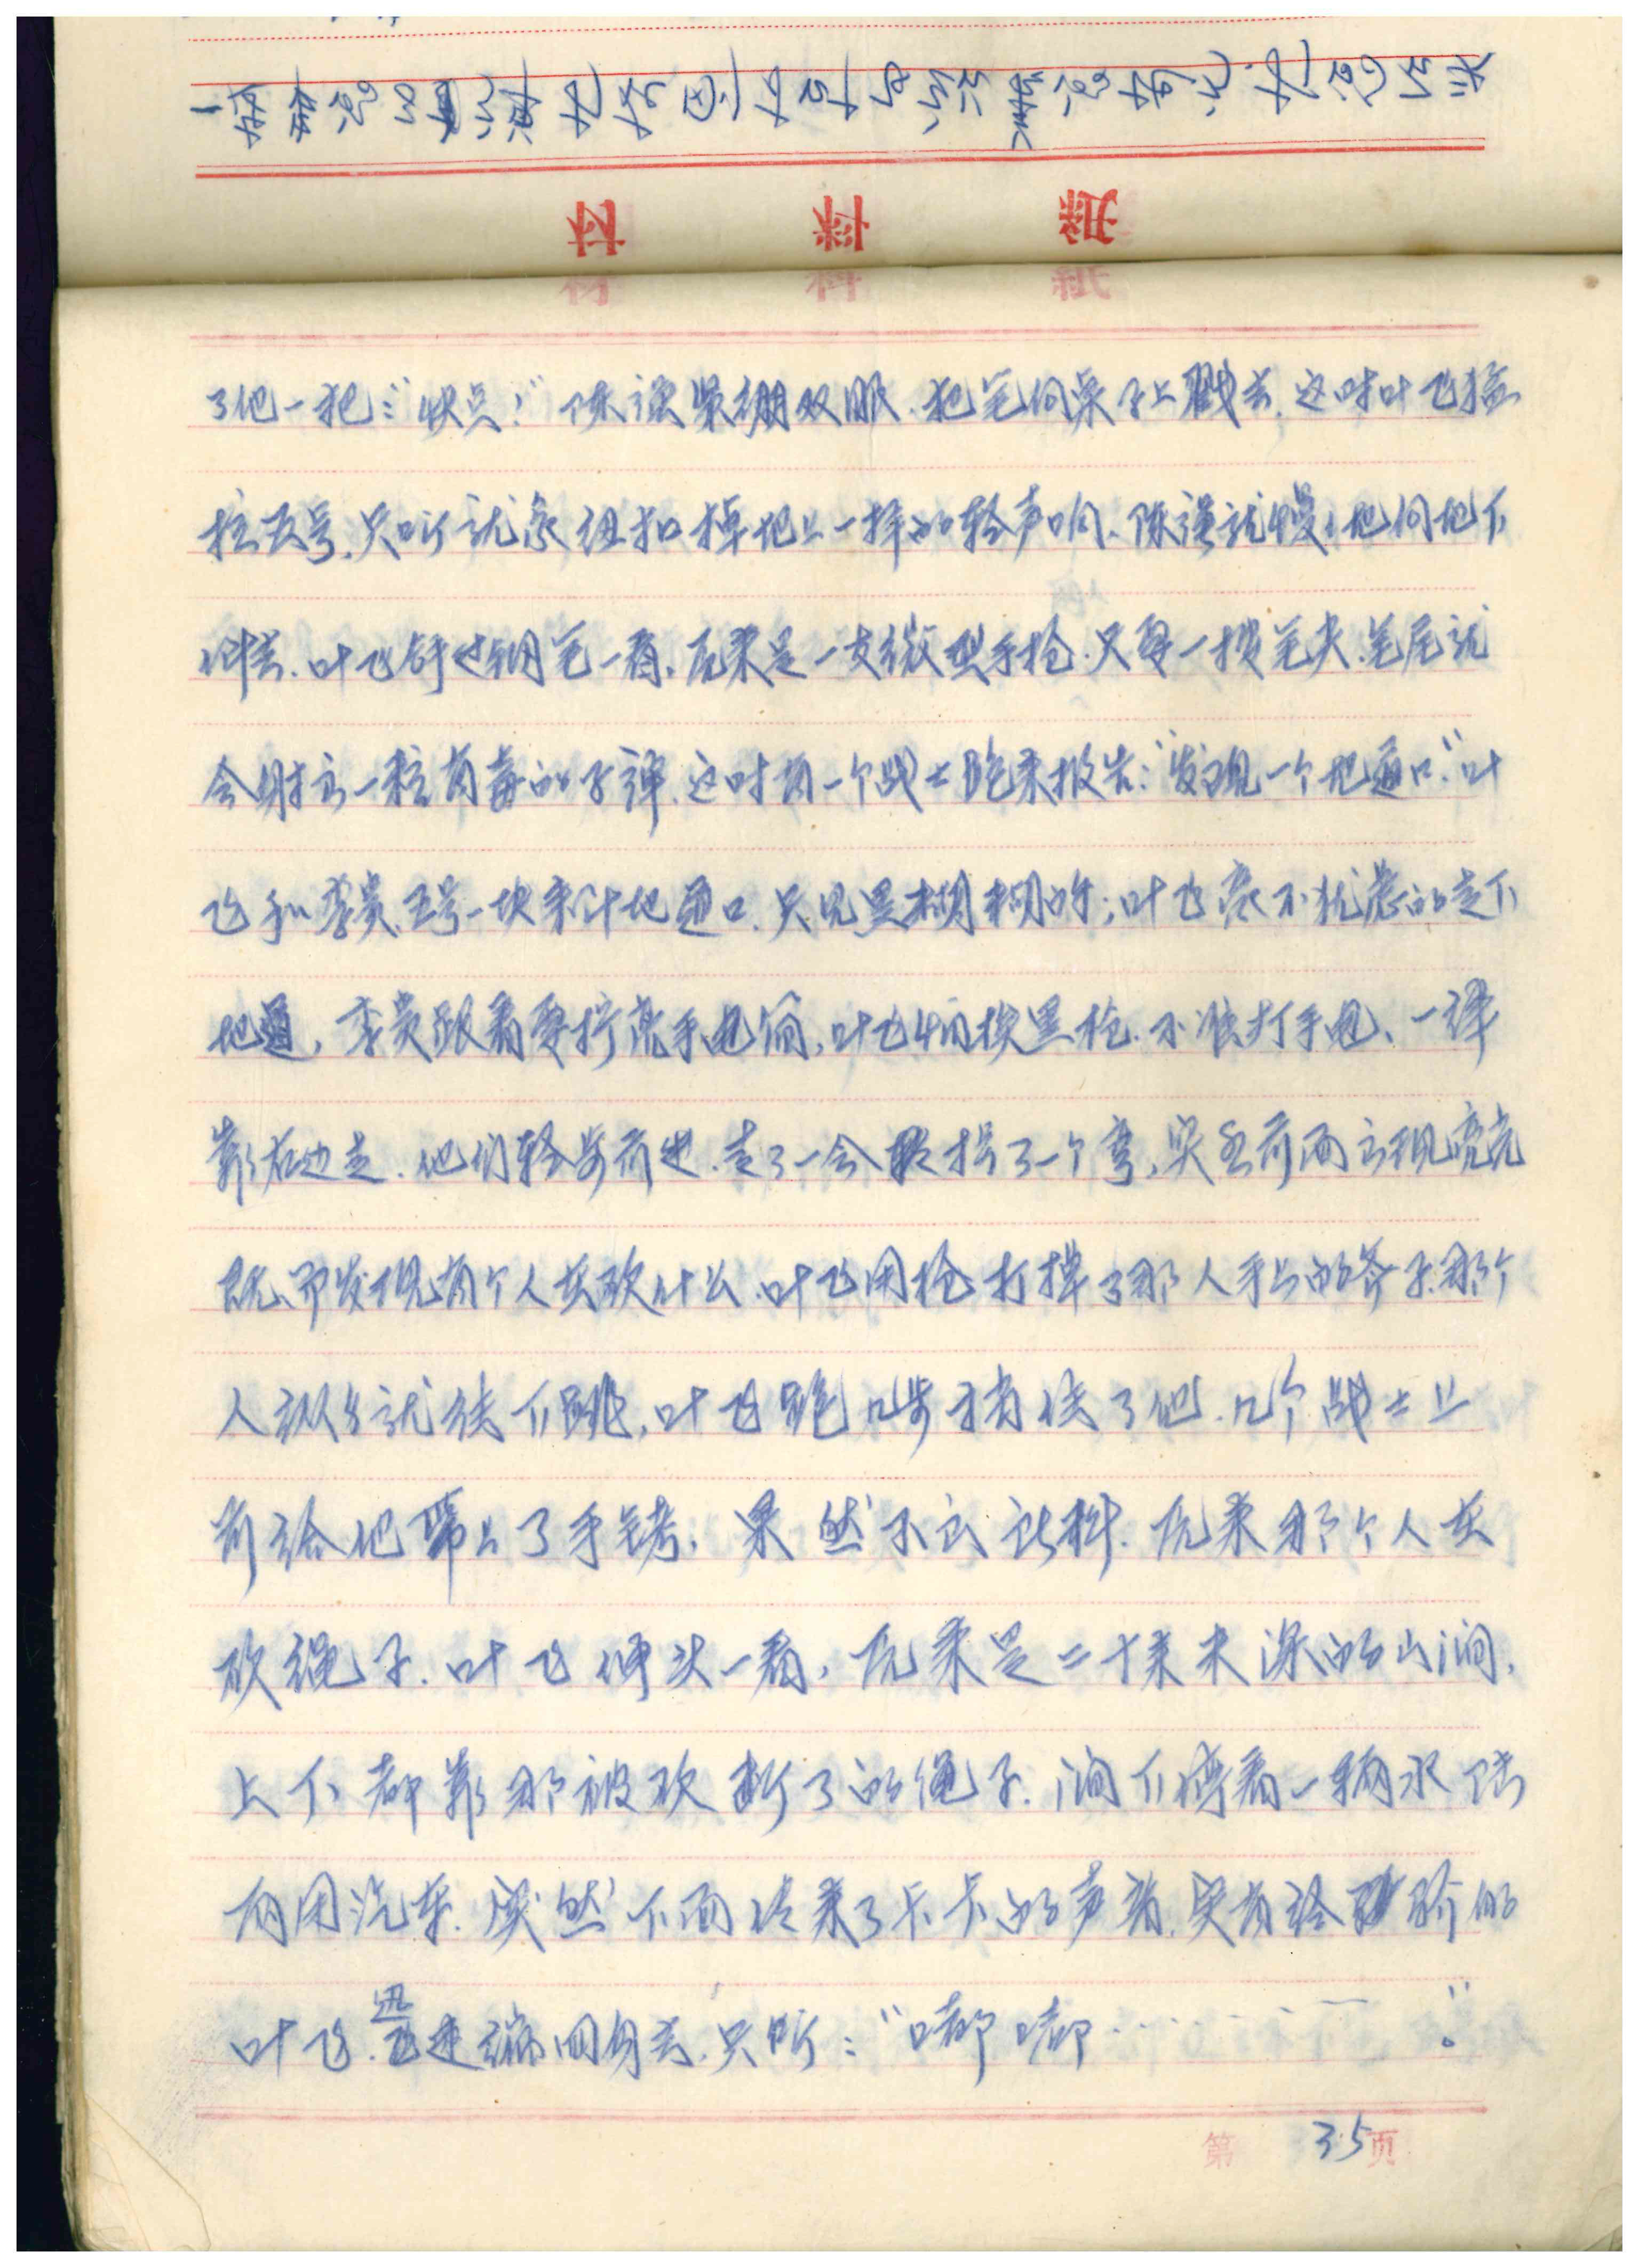 材料纸
了他一把:“快点!”陈谦紧绷双眼.把笔向桌子上戳去.这时叶飞猛
拉五号.只听就象纽扣掉地上一样的轻声响.陈谦就慢慢地向地下
倒去.叶飞拿过钢笔一看,原来是一支微型手枪.只要一按笔夹.笔尾就
会射出一粒有毒的子弹.这时有一个战士跑来报告:“发现一个地道口.”叶
飞和李贵.五号一块来到地道口.只见黑糊糊的;叶飞毫不犹虑的走下
地道,李贵跟着要拧亮手电筒,叶飞怕挨黑枪.不准打手电、一律
靠右边走.他们轻步前进.走了一会拐了一个弯,突然前面出现亮光
既而发现有个人在砍什么.叶飞用枪打掉了那人手上的斧子.那个
人纵身就往下跳,叶飞跑几步揪住了他.几个战士上
前给他带上了手铐.果然不出所料.原来那个人在
砍绳子.叶飞伸头一看,原来是二十来米深的山涧.
上下都靠那被砍断了的绳子.涧下停着一辆水陆
两用汽车.突然下面传来了卡卡的声音.突有经验的
叶飞.迅速缩回身去.只听:“嘟嘟…… 。”
第35页